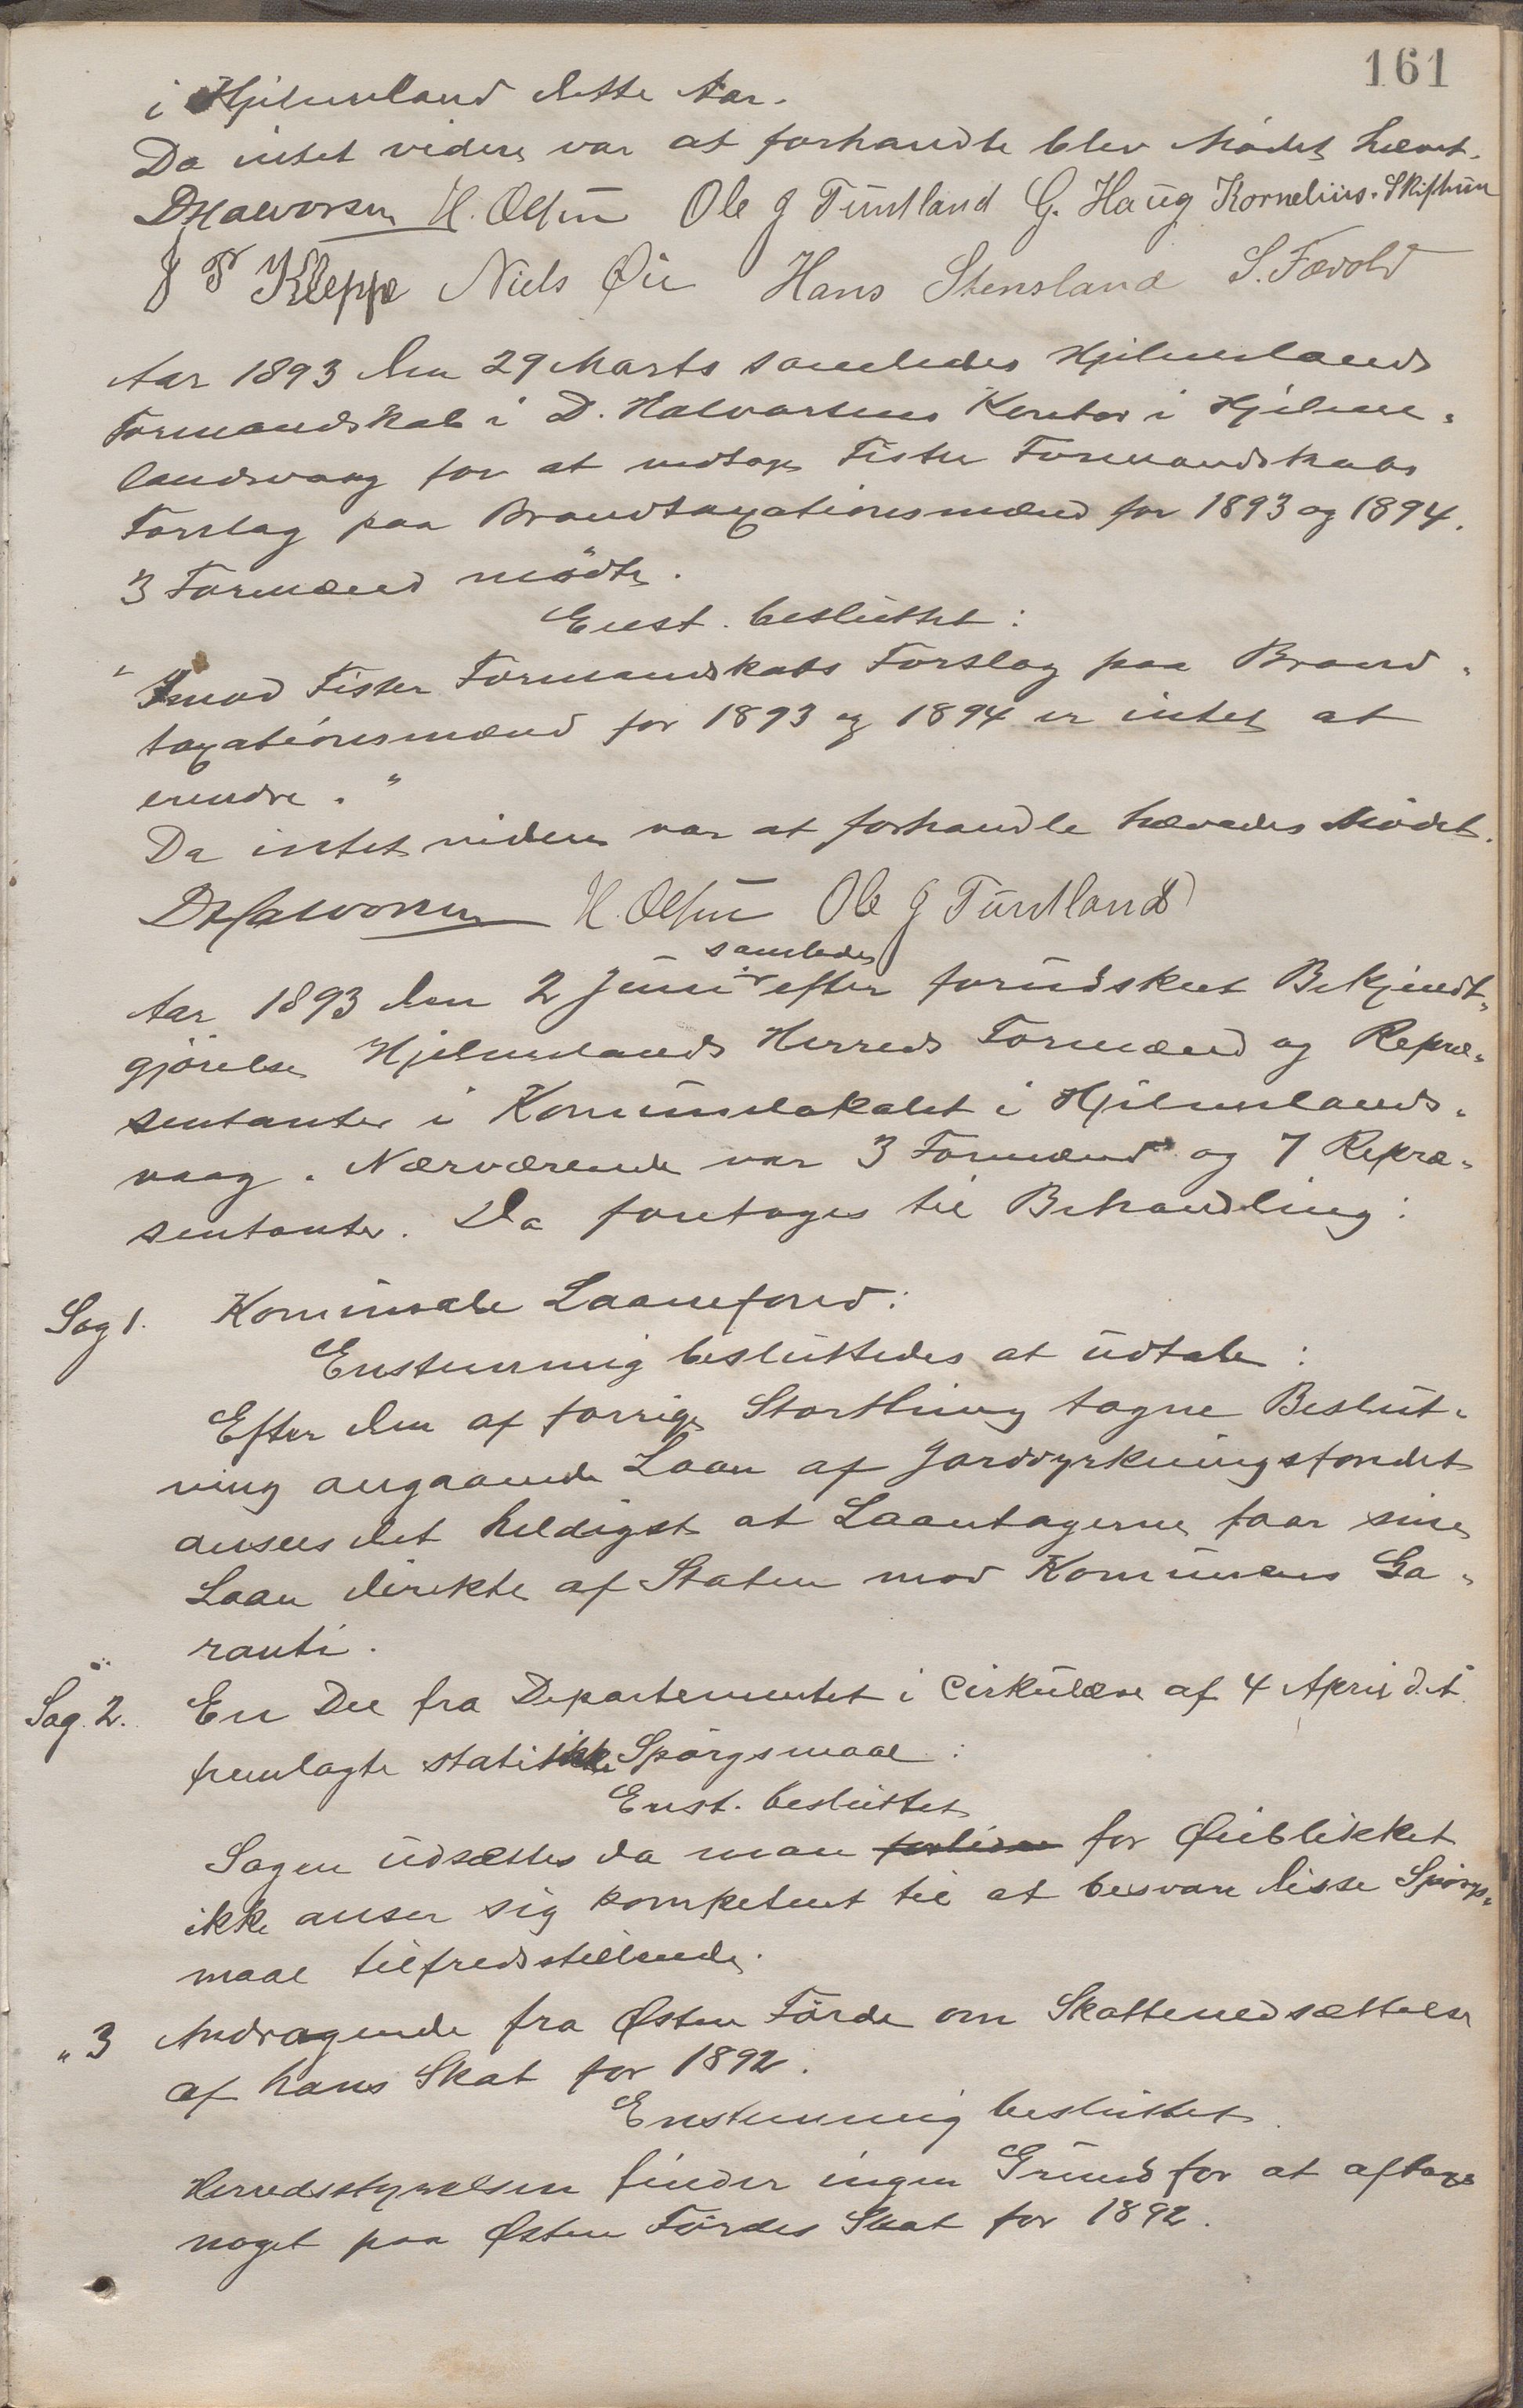 161
i Hjelmeland dette Aar.
Da intet videre var at forhandle blev Mødet hævet.
D Halvorsen H. Olsen Ole G Tuntland G. Haug Kornelius. Skiftun
J P Kleppe Niels Øie Hans Stensland S. Fævold
Aar 1893 den 29 Marts samledes Hjelmelands
Formandskab i D. Halvorsens Kontor i Hjelme-
landsvaag for at modtage Fister Formandskabs
Forslag paa Brandtaxationsmænd for 1893 og 1894.
3 Formænd mödte.
Enst. besluttet:
"Imod Fister Formandskabs Forslag paa Brand-
taxationsmænd for 1893 og 1894 er intet at
erindre."
Da intet videre var at forhandle hævedes Mödet.
D Halvorsen H. Olsen Ole G Tuntland
samledes
Aar 1893 den 2 Juni efter forudskeet Bekjendt-
gjörelse Hjelmelands Herreds Formænd og Repræ-
sentanter i Komunelokalet i Hjelmelands-
vaag. Nærværende var 3 Formænd og 7 Repræ-
sentanter. Da foretoges til Behandling:
Sag 1. Komunale Laanefond:
Enstemmig besluttedes at udtale:
Efter den af forrige Storthing tagne Beslut-
ning angaaende Laan af Jorddyrkningsfondet
ansees det heldigst at Laantagerne faar sine
Laan direkte af Staten mod Komunens Ga-
ranti.
Sag. 2. En Del fra Departementet i Cirkulære af 4 April d.A.
fremlagte statistikke Spörgsmaal:
Enst. besluttet
Sagen udsættes da man for Øieblikket
ikke anser sig kompetent til at besvare disse Spörgs-
maal tilfredsstillende.
" 3 Andragende fra Østen Förde om Skattenedsættelse
af hans Skat for 1892.
Enstemmig besluttet.
Herredsstyrelsen finder ingen Grund for at aftage
noget paa Østen Fördes Skat for 1892.